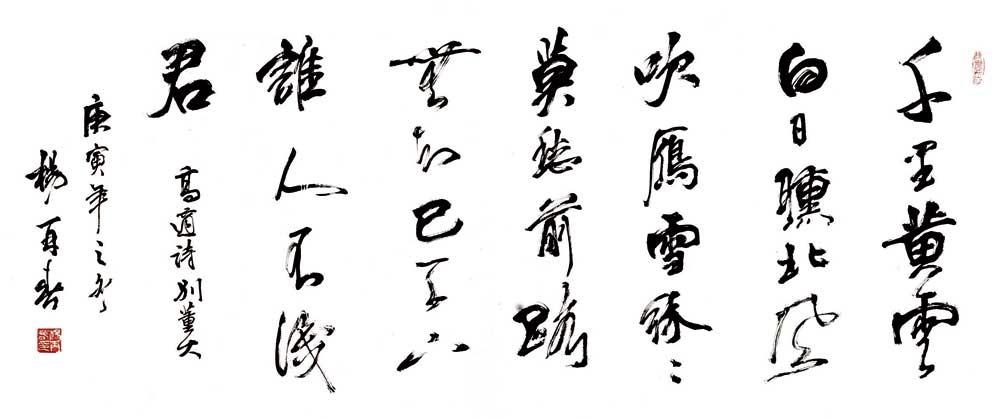 千里黄雲
白日曛北風
吹鴈雪紛〻
莫愁前路
無知己天下
誰人不識
君
高適詩別董大
庚寅年之
楊再春